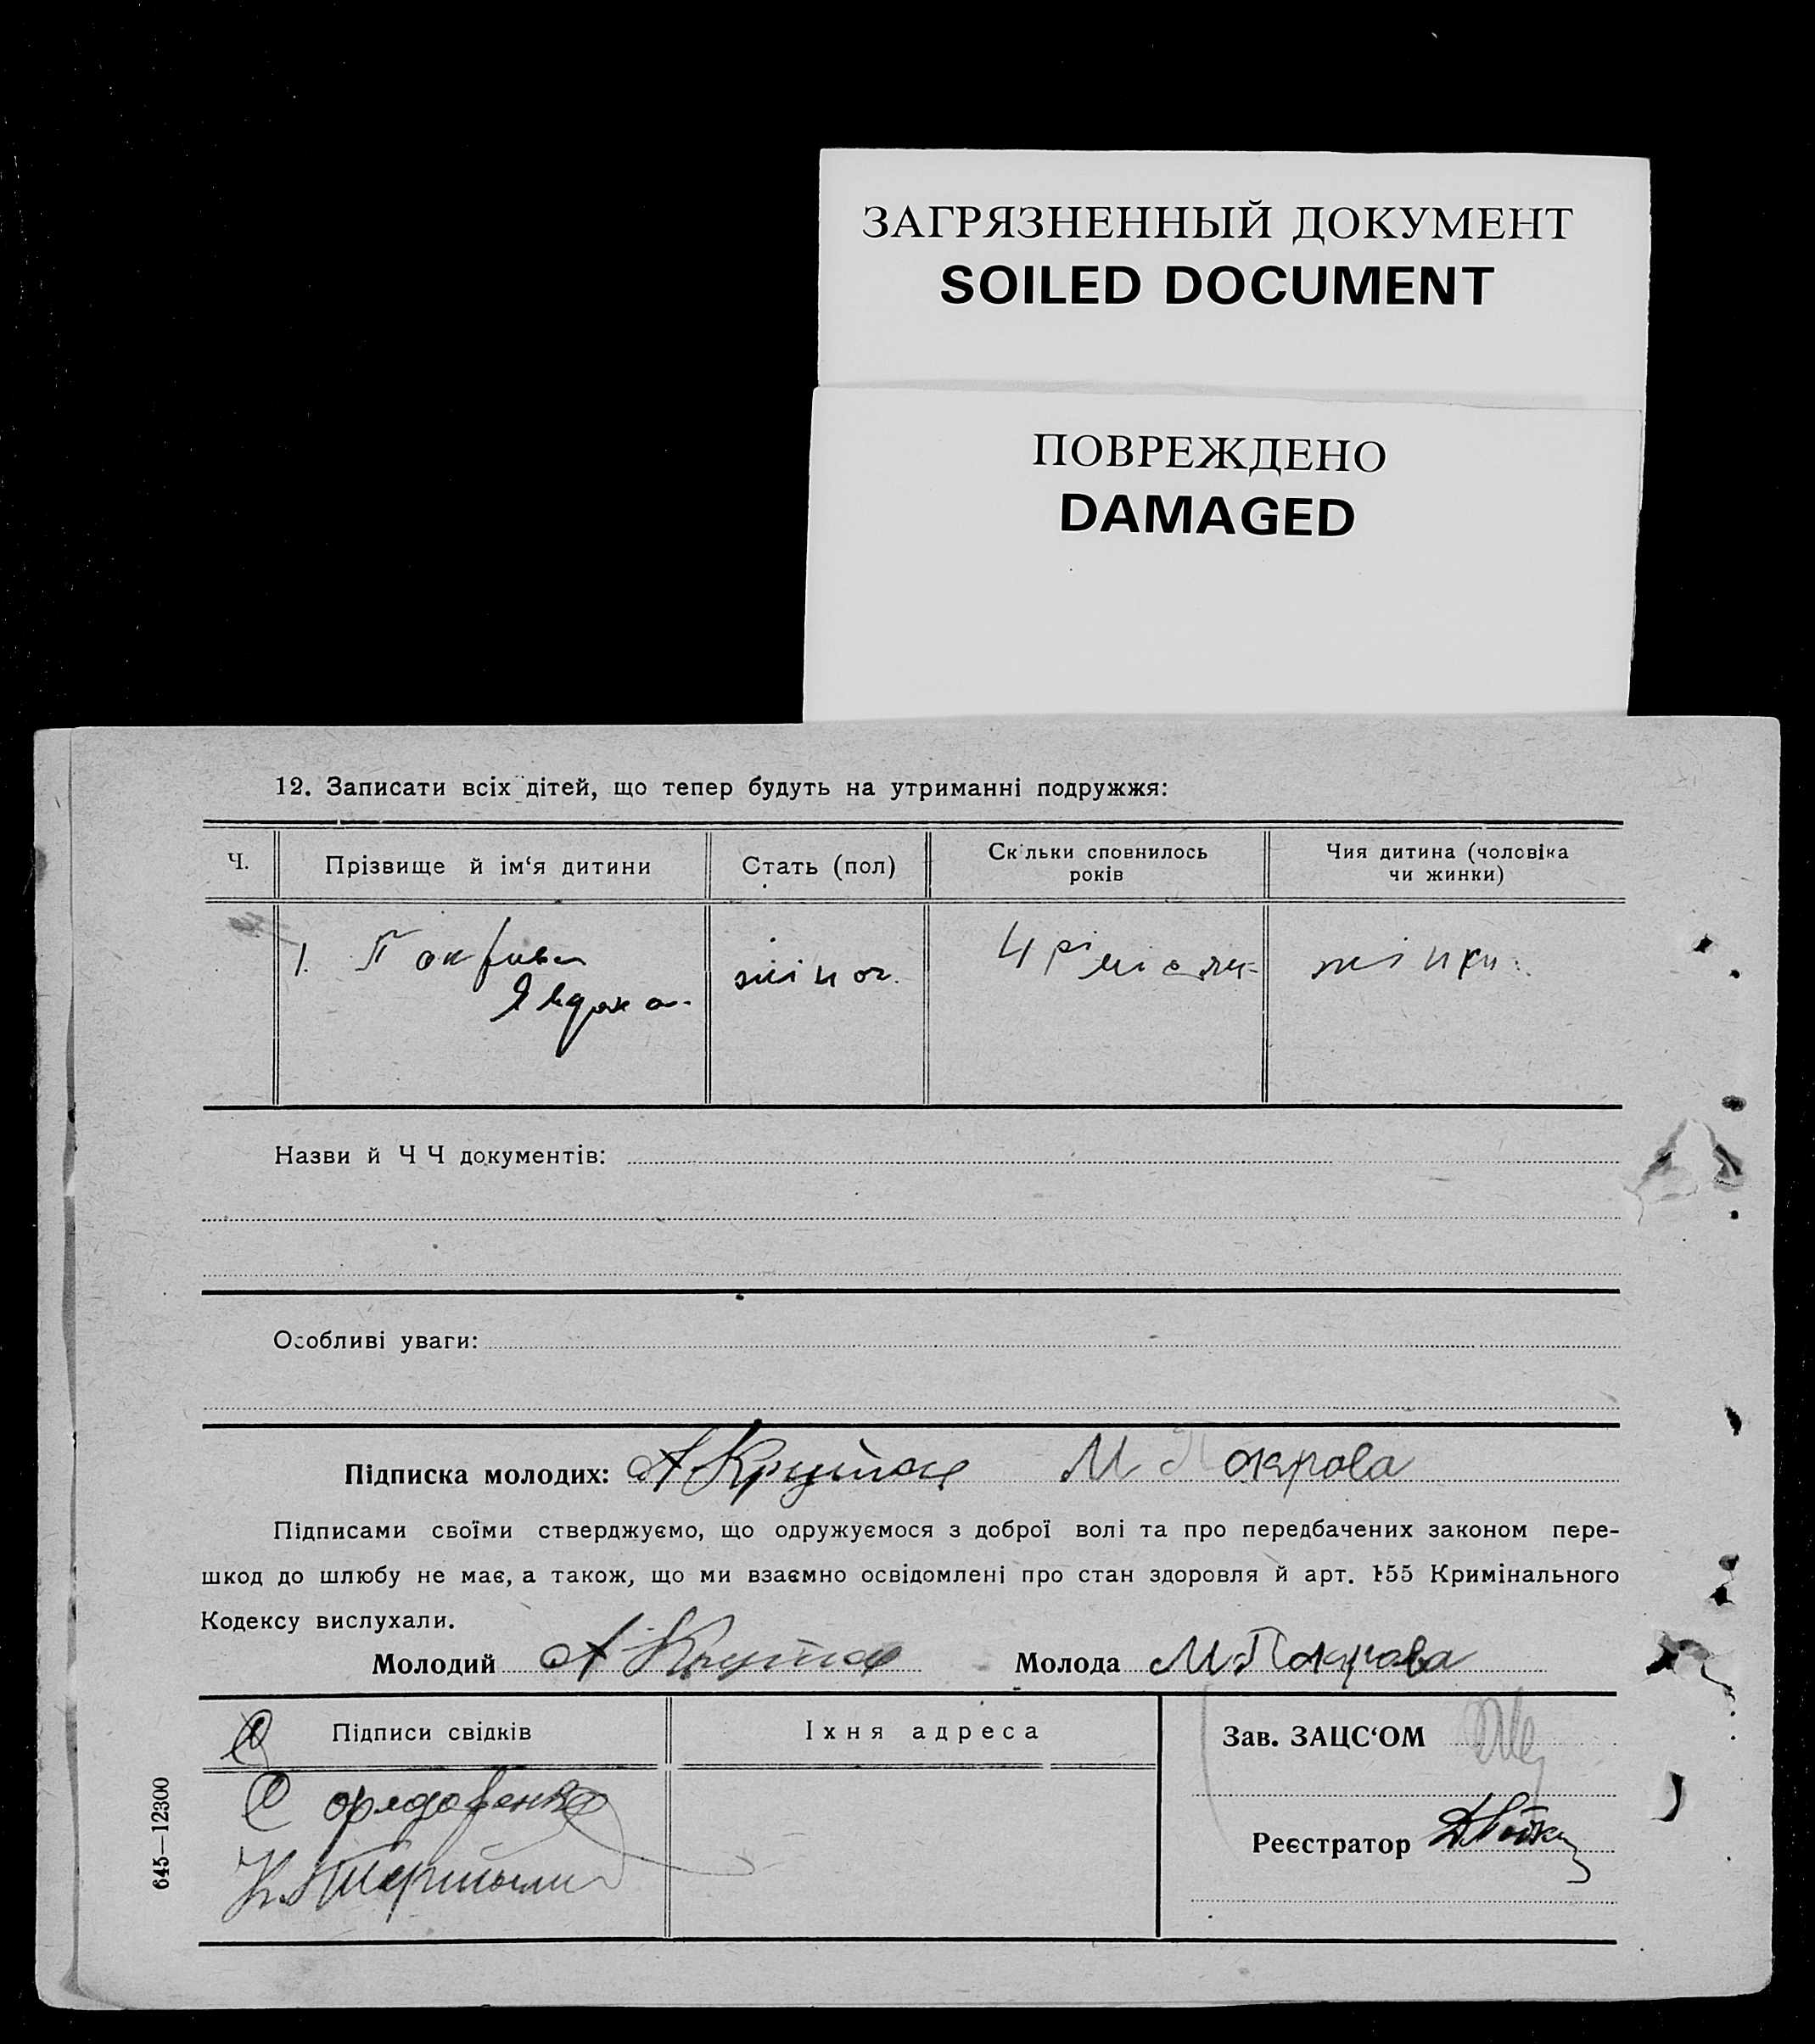 ЗАГРЯЗНЕННЫЙ ДОКУМЕНТ
SOILED DOCUMENT
ПОВРЕЖДЕНО
DAMAGED
12. Записати всіх дітей, що тепер будуть на утриманні подружжя:
Ч. Прізвище й ім‘я дитини Стать (пол) Скільки сповнилось років Чия дитина (чоловіка чи жинки)
1. жіноч. 4 жінки
Назви й Ч Ч документів:
Особливі уваги:
Підписка молодих: А М Покрова
Підписами своїми стверджуємо, що одружуємося з доброї волі та про передбачених законом пере-
шкод до шлюбу не має, а також, що ми взаємно освідомлені про стан здоровля й арт. 155 Кримінального
Кодексу вислухали.
Молодий А Молода М Покрова
Підписи свідків Їхня адреса Зав. ЗАЦС‘ОМ
Реєстратор
645—12300